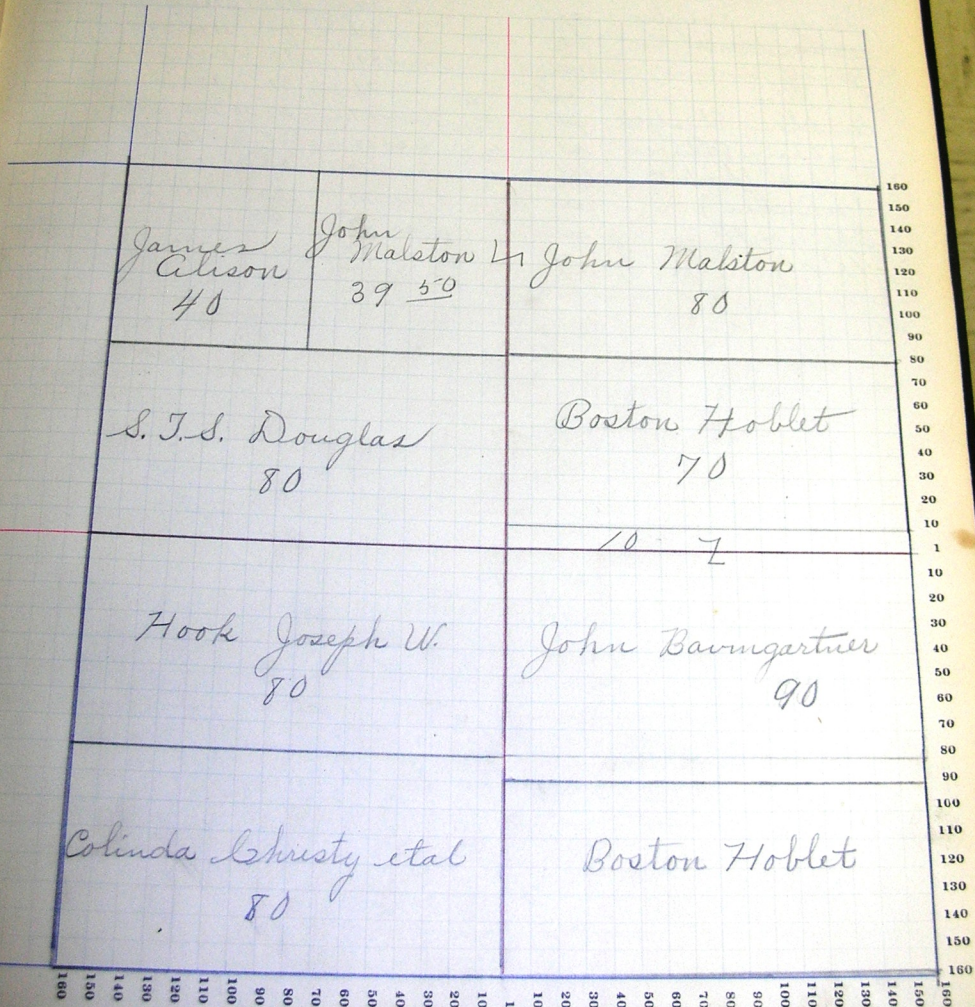 James
Alison
40
John
Malston
39 50
John Malston
80
S. T. S. Douglas
80
Boston Hoblet
70
10
Hook Joseph W.
80
John Baumgartner
90
Colinda Christy etal
80
Boston Hoblet
160
150
140
130
120
110
100
90
80
70
60
50
40
30
20
10
1
10
20
30
40
50
60
70
80
90
100
110
120
130
140
150
160
160 150 140 130 120 110 100 90 80 70 60 50 40 30 20 10 1 10 20 30 40 50 60 70 80 90 100 110 120 130 140 150 160